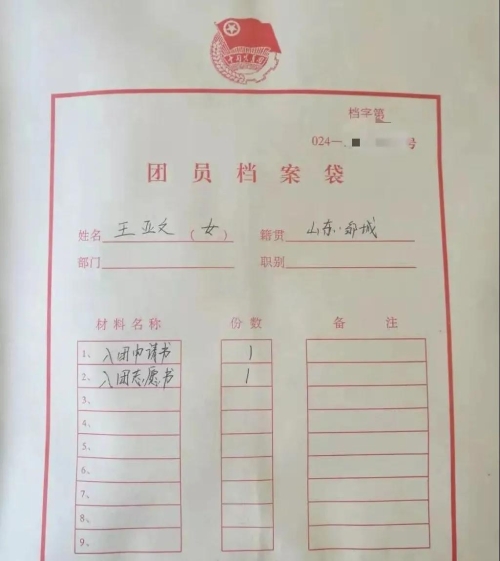 中国共青团
档字第
024—. 号
团员档案袋
姓名 王亚文 (女) 籍贯 山东.郯城
部门 职别
材料名称 份数 备注
1、入团申请书 1
2、入团志愿书 1
3、
4、
5、
6、
7、
8、
9、